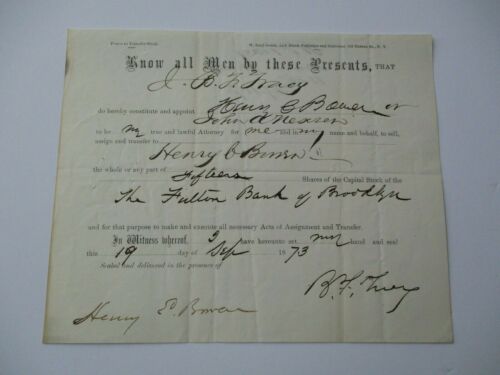 Power to Transfer Stock.
Know all Men by these Presents, THAT
I B. F. Tracy
do hereby constitute and appoint Henry C Bowen or
John A Nexsen
to be my true and lawful Attorney for me and in my name and behalf, to sell,
assign and transfer to
Henry C Bowen
the whole or any part of Fifteen Shares of the Capital Stock of the
The Fulton Bank of Brooklyn
and for that purpose to make and execute all necessary Acts of Assignment and Transfer.
In Witness whereof, I have hereunto set my hand and seal
this 19 day of Sep 1873
Sealed and delivered in the presence of
B. F. Tracy
Henry E. Bowen